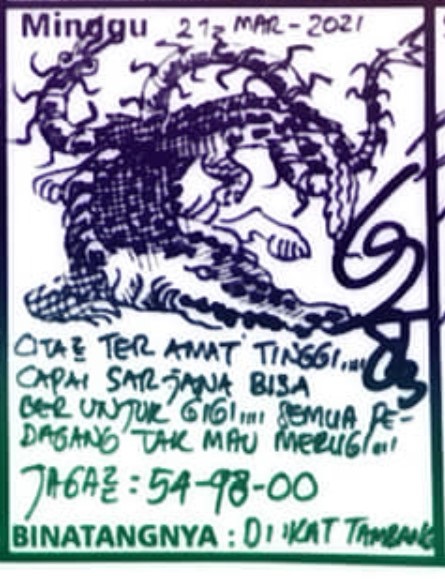 Minggu 21 MAR-2021
OTAK TER AMAT TINGGI....
CAPAI SARJANA BISA
BER UNTUK GIGI.... SEMUA PE-
DAGANG TAK MAU MERUGI....
JAGA : 54-98-00
BINATANGNYA : DI IKAT TAMBANG